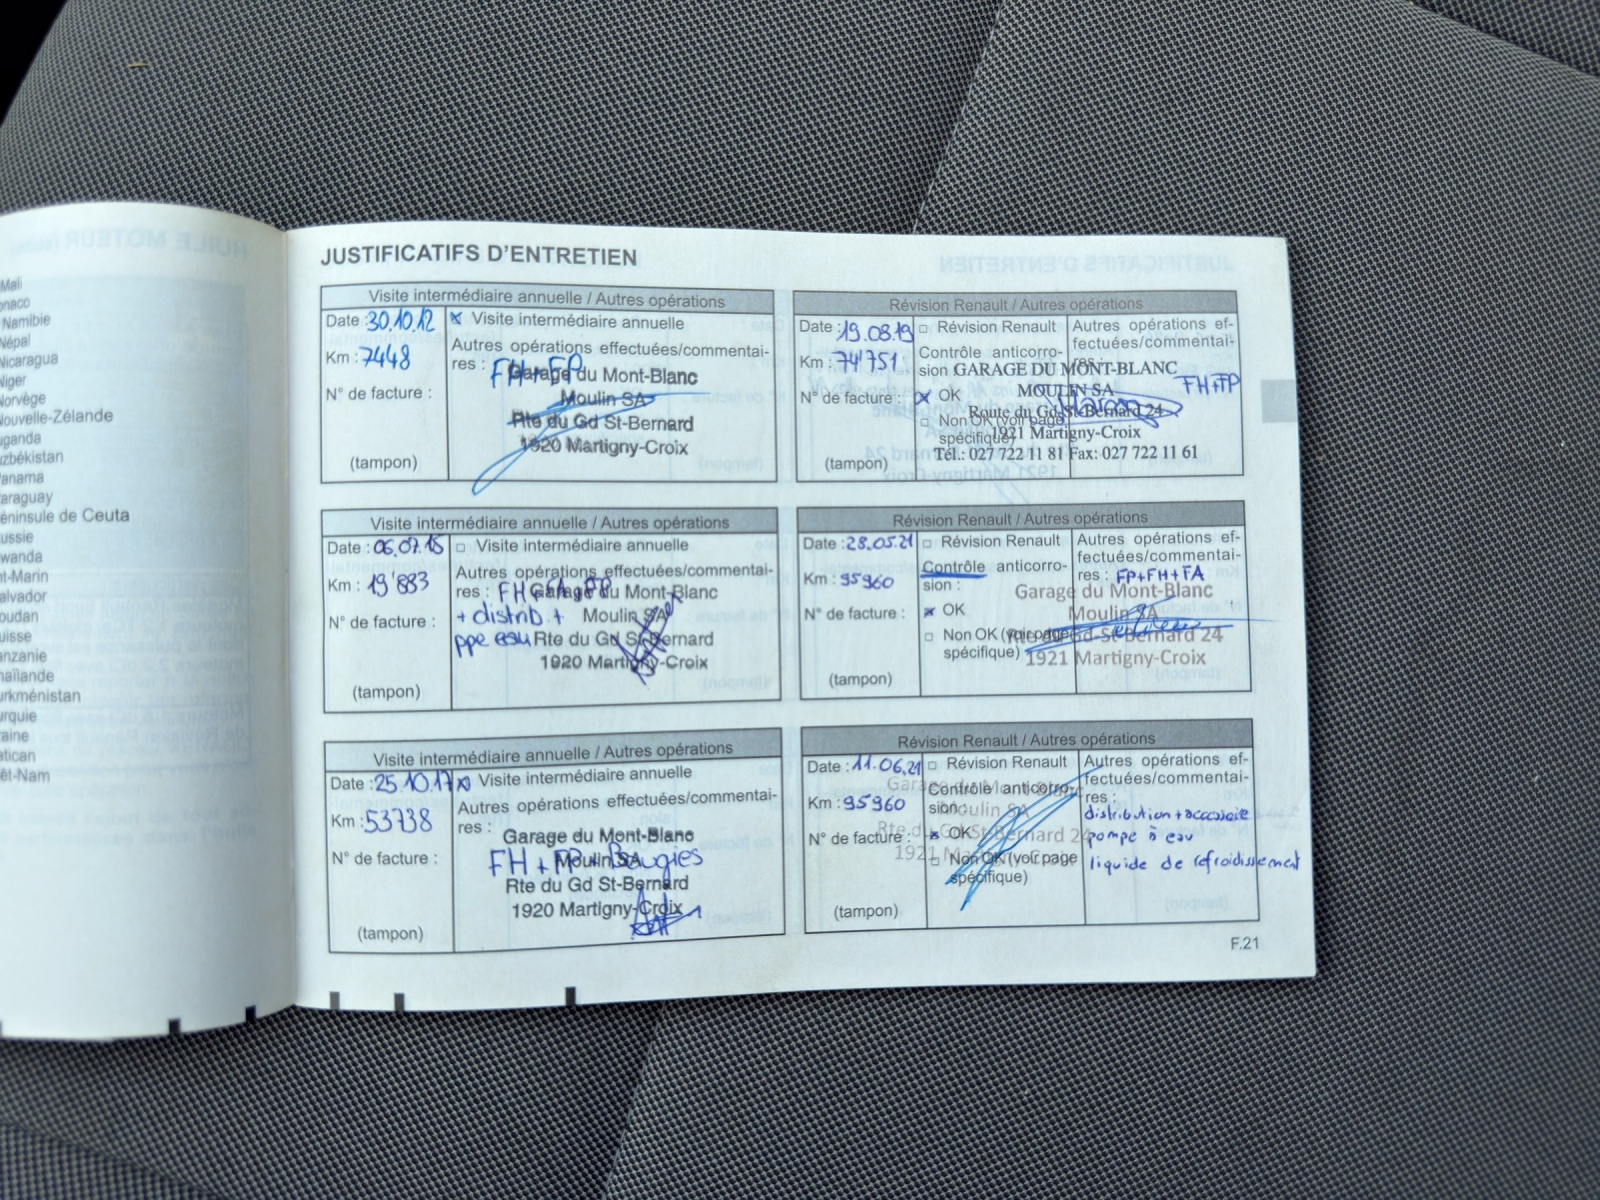 Mali
onaco
Namibie
Népal
Nicaragua
Niger
Norvège
Nouvelle-Zélande
uganda
uzbékistan
anama
araguay
éninsule de Ceuta
ussie
wanda
nt-Marin
alvador
oudan
uisse
anzanie
haïlande
urkménistan
urquie
raine
atican
êt-Nam
JUSTIFICATIFS D'ENTRETIEN
Visite intermédiaire annuelle / Autres opérations
Date : 30.10.12
Km : 7448
N° de facture :
(tampon)
x Visite intermédiaire annuelle
Autres opérations effectuées/commentai-
res : FH + FP
Garage du Mont-Blanc
Moulin SA
Rte du Gd St-Bernard
1920 Martigny-Croix
Visite intermédiaire annuelle / Autres opérations
Date : 06.07.15
Km : 19'883
N° de facture :
(tampon)
□ Visite intermédiaire annuelle
Autres opérations effectuées/commentai-
res : FH + FA + FP
+ distrib. +
ppe eau
Garage du Mont-Blanc
Moulin SA
Rte du Gd St-Bernard
1920 Martigny-Croix
Visite intermédiaire annuelle / Autres opérations
Date : 25.10.17
Km : 53738
N° de facture :
(tampon)
x Visite intermédiaire annuelle
Autres opérations effectuées/commentai-
res :
FH + FP + Bougies
Garage du Mont-Blanc
Moulin SA
Rte du Gd St-Bernard
1920 Martigny-Croix
Révision Renault / Autres opérations
Date : 19.08.19
Km : 74'751
N° de facture :
(tampon)
□ Révision Renault
Contrôle anticorro-
sion :
x OK
□ Non OK (voir page
spécifique)
Autres opérations ef-
fectuées/commentai-
res :
FH+FP
GARAGE DU MONT-BLANC
MOULIN SA
Route du Gd St-Bernard 24
1921 Martigny-Croix
Tél.: 027 722 11 81 Fax: 027 722 11 61
Révision Renault / Autres opérations
Date : 28.05.21
Km : 95960
N° de facture :
(tampon)
□ Révision Renault
Contrôle anticorro-
sion :
x OK
□ Non OK (voir page
spécifique)
Autres opérations ef-
fectuées/commentai-
res : FP+FH+FA
Garage du Mont-Blanc
Moulin SA
Rte du Gd-St-Bernard 24
1921 Martigny-Croix
Révision Renault / Autres opérations
Date : 11.06.21
Km : 95960
N° de facture :
(tampon)
□ Révision Renault
Contrôle anticorro-
sion :
x OK
□ Non OK (voir page
spécifique)
Autres opérations ef-
fectuées/commentai-
res :
distribution + accessoire
pompe à eau
liquide de refroidissement
Garage du Mont-Blanc
Moulin SA
Rte du Gd-St-Bernard 24
1921 Martigny-Croix
F.21